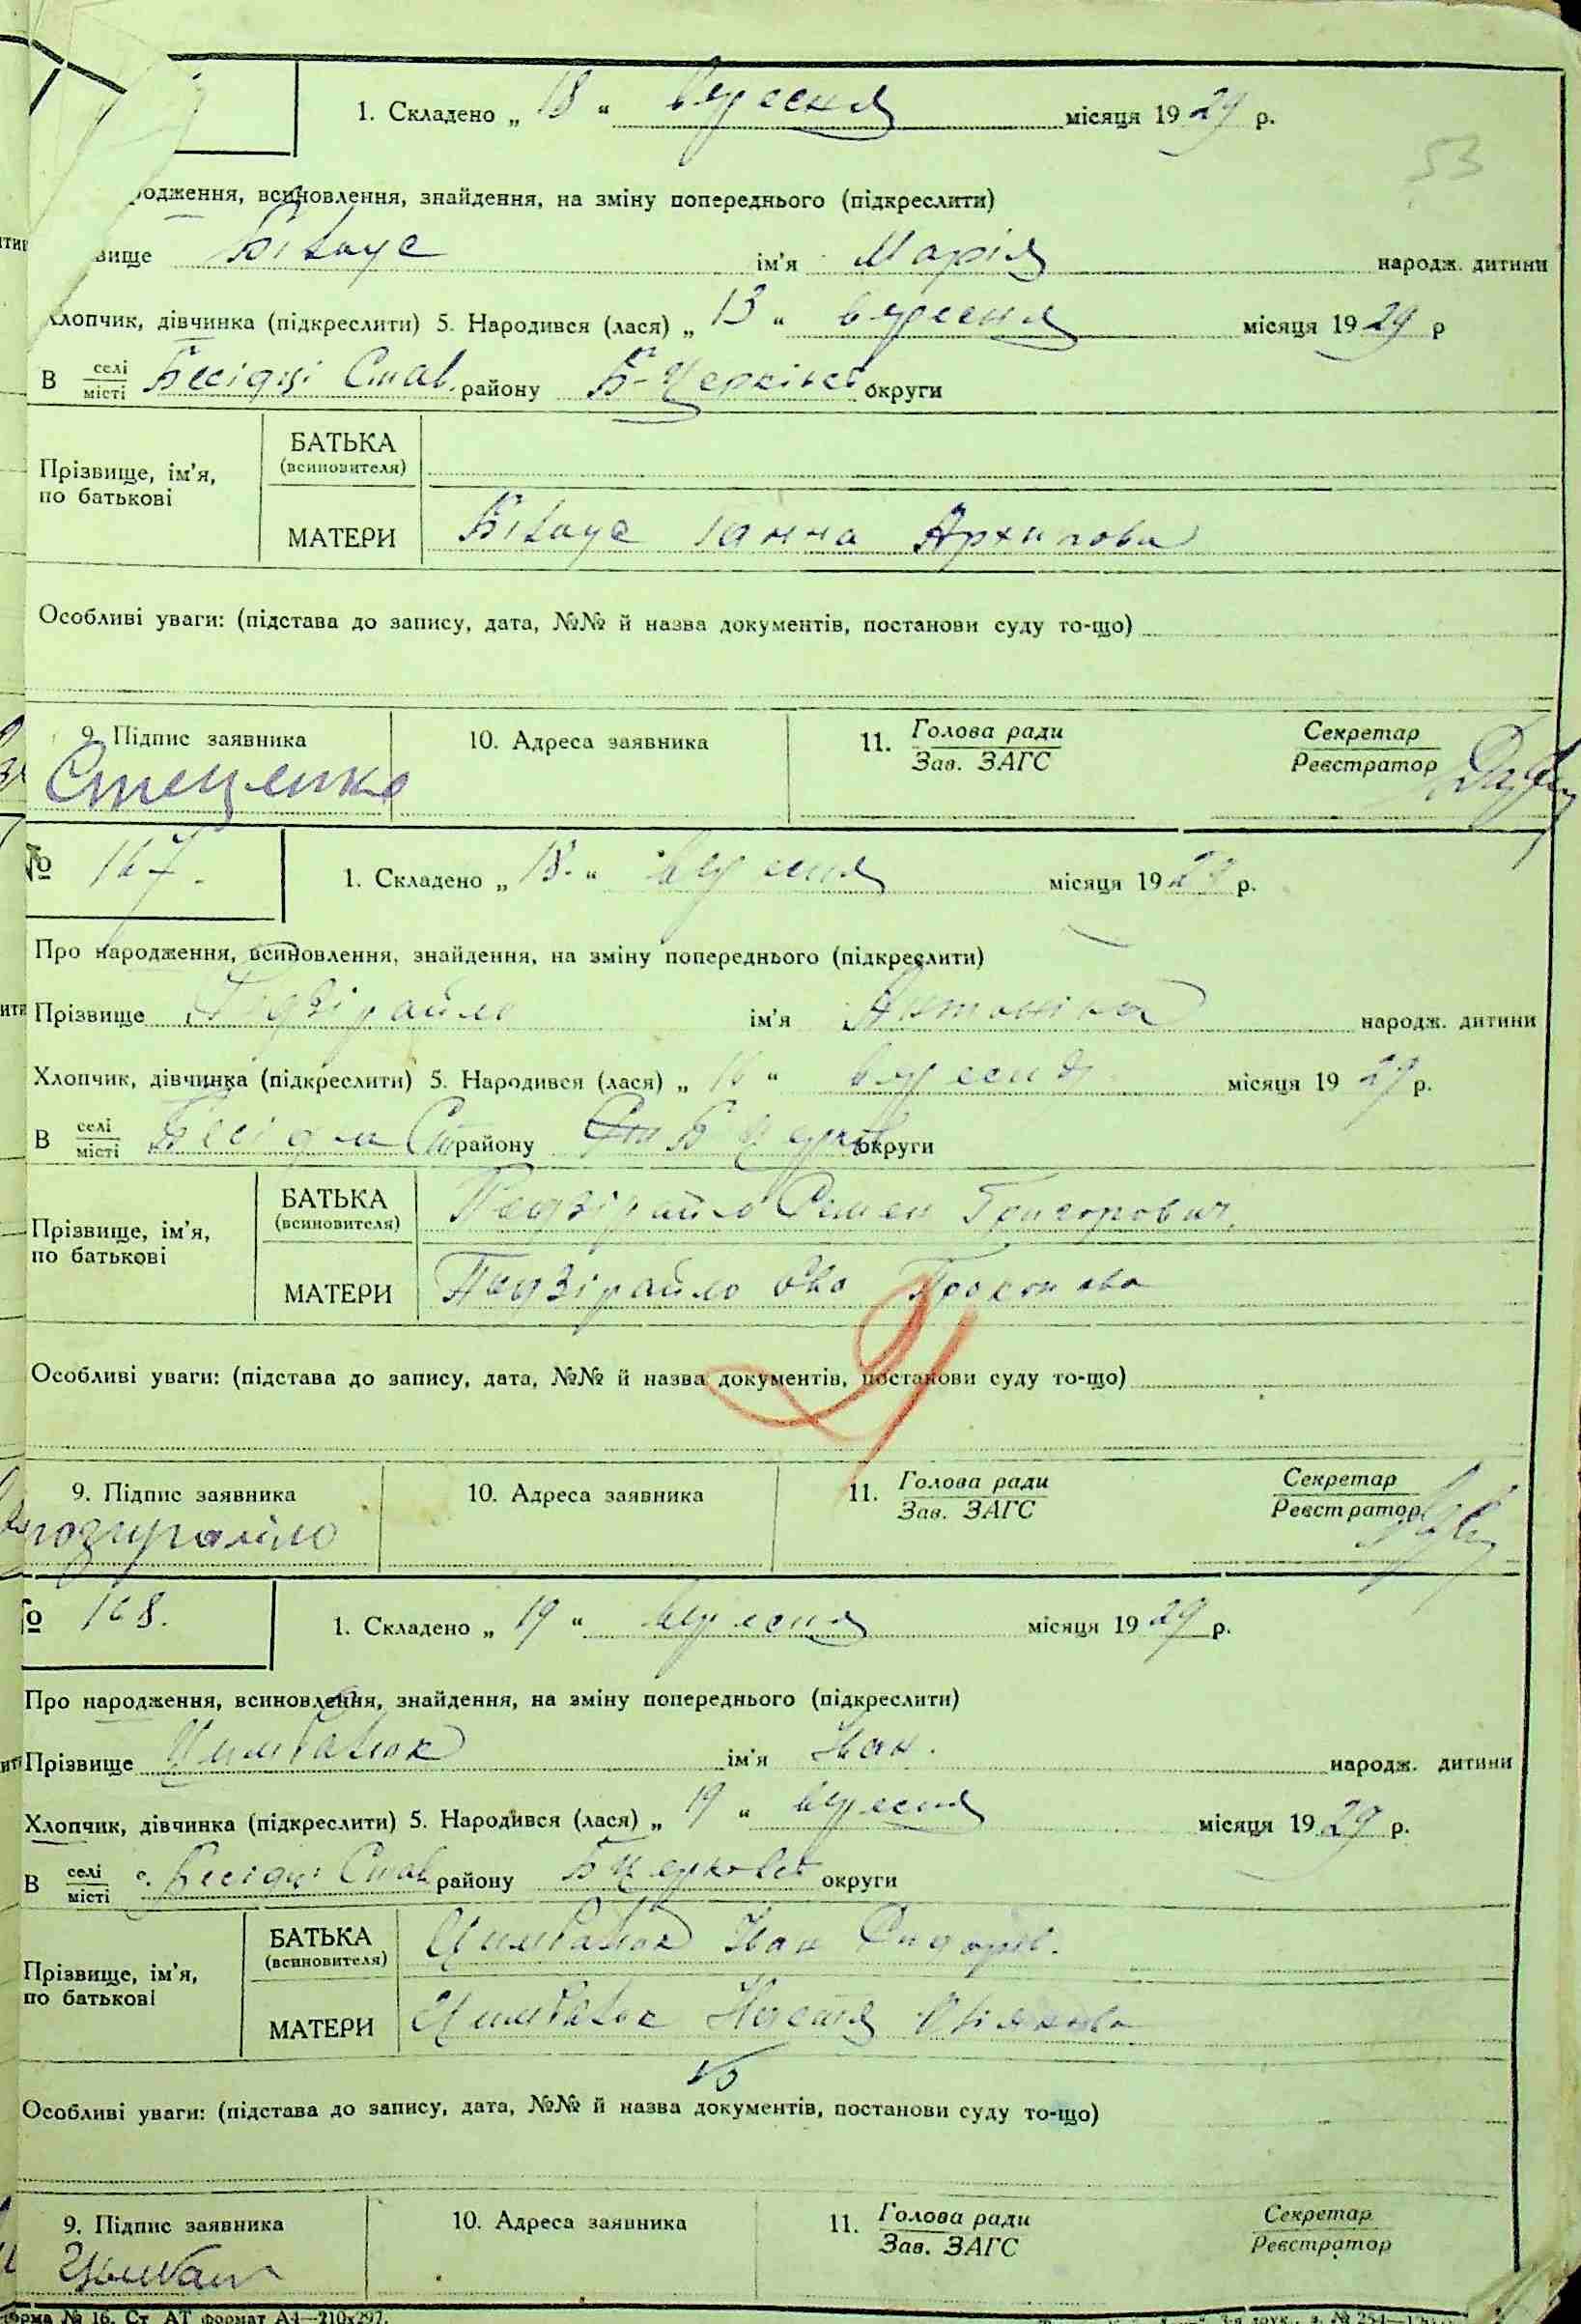 1. Складено „ 18 “ вересня місяця 1929 р.
53
родження, всиновлення, знайдення, на зміну попереднього (підкреслити)
вище Білоус ім'я Марія народж. дитини
Хлопчик, дівчинка (підкреслити) 5. Народився (лася) „ 13 “ вересня місяця 1929 р
В селі місті Бесідці Став. району Б-Церківсь округи
БАТЬКА
(всиновителя)
Прізвище, ім'я,
по батькові
МАТЕРИ Білоус Ганна Архипова
Особливі уваги: (підстава до запису, дата, №№ й назва документів, постанови суду то-що)
9. Підпис заявника 10. Адреса заявника 11. Голова ради Зав. ЗАГС Секретар Реєстратор
Стеценко
№ 167. 1. Складено „ 18. “ вересня місяця 1929 р.
Про народження, всиновлення, знайдення, на зміну попереднього (підкреслити)
Прізвище ім'я Антоніна народж. дитини
Хлопчик, дівчинка (підкреслити) 5. Народився (лася) „ 16 “ вересня місяця 1929 р.
В селі місті району округи
БАТЬКА
(всиновителя) Подзірайло Семен Григорович
Прізвище, ім'я,
по батькові
МАТЕРИ Подзірайло Єва
Особливі уваги: (підстава до запису, дата, №№ й назва документів, постанови суду то-що)
9. Підпис заявника 10. Адреса заявника 11. Голова ради Зав. ЗАГС Секретар Реєстратор
№ 168. 1. Складено „ 19 “ вересня місяця 1929 р.
Про народження, всиновлення, знайдення, на зміну попереднього (підкреслити)
Прізвище Цимбалюк ім'я Іван. народж. дитини
Хлопчик, дівчинка (підкреслити) 5. Народився (лася) „ 19 “ вересня місяця 1929 р.
В селі місті с. Бесідці Став. району Б Церковсь округи
БАТЬКА
(всиновителя) Цимбалюк Іван Сидорів.
Прізвище, ім'я,
по батькові
МАТЕРИ Цимбалюк Настя
Особливі уваги: (підстава до запису, дата, №№ й назва документів, постанови суду то-що)
9. Підпис заявника 10. Адреса заявника 11. Голова ради Зав. ЗАГС Секретар Реєстратор
форма № 16. Ст. АТ формат А4—210х297.